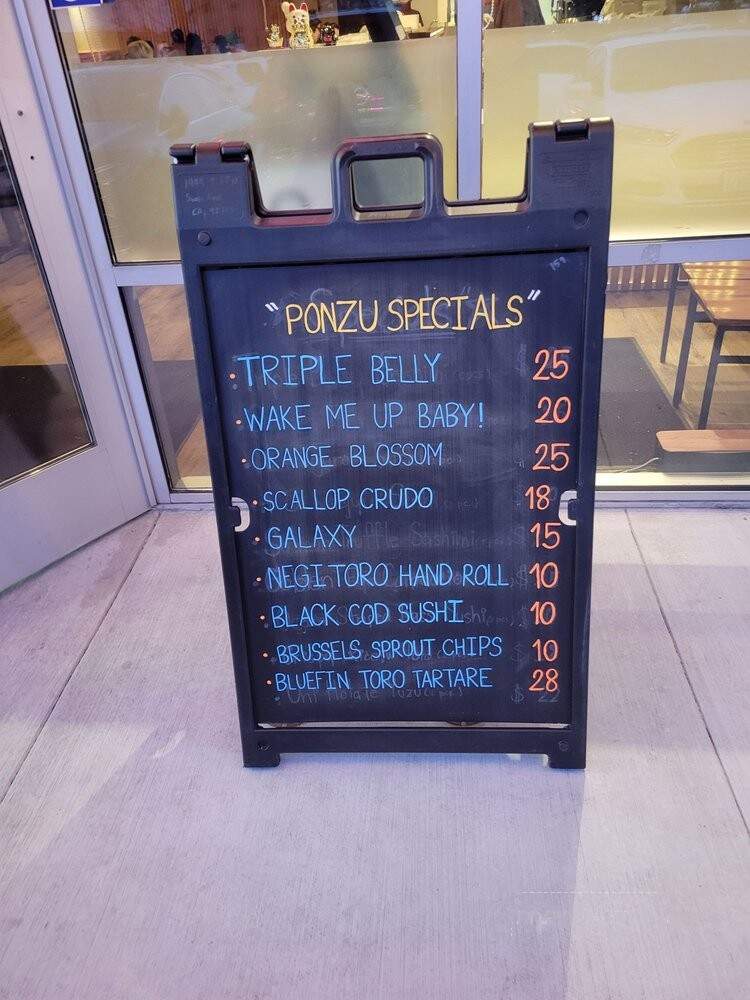 "PONZU SPECIALS"
• TRIPLE BELLY 25
• WAKE ME UP BABY! 20
• ORANGE BLOSSOM 25
• SCALLOP CRUDO 18
• GALAXY 15
• NEGI TORO HAND ROLL 10
• BLACK COD SUSHI 10
• BRUSSELS SPROUT CHIPS 10
• BLUEFIN TORO TARTARE 28